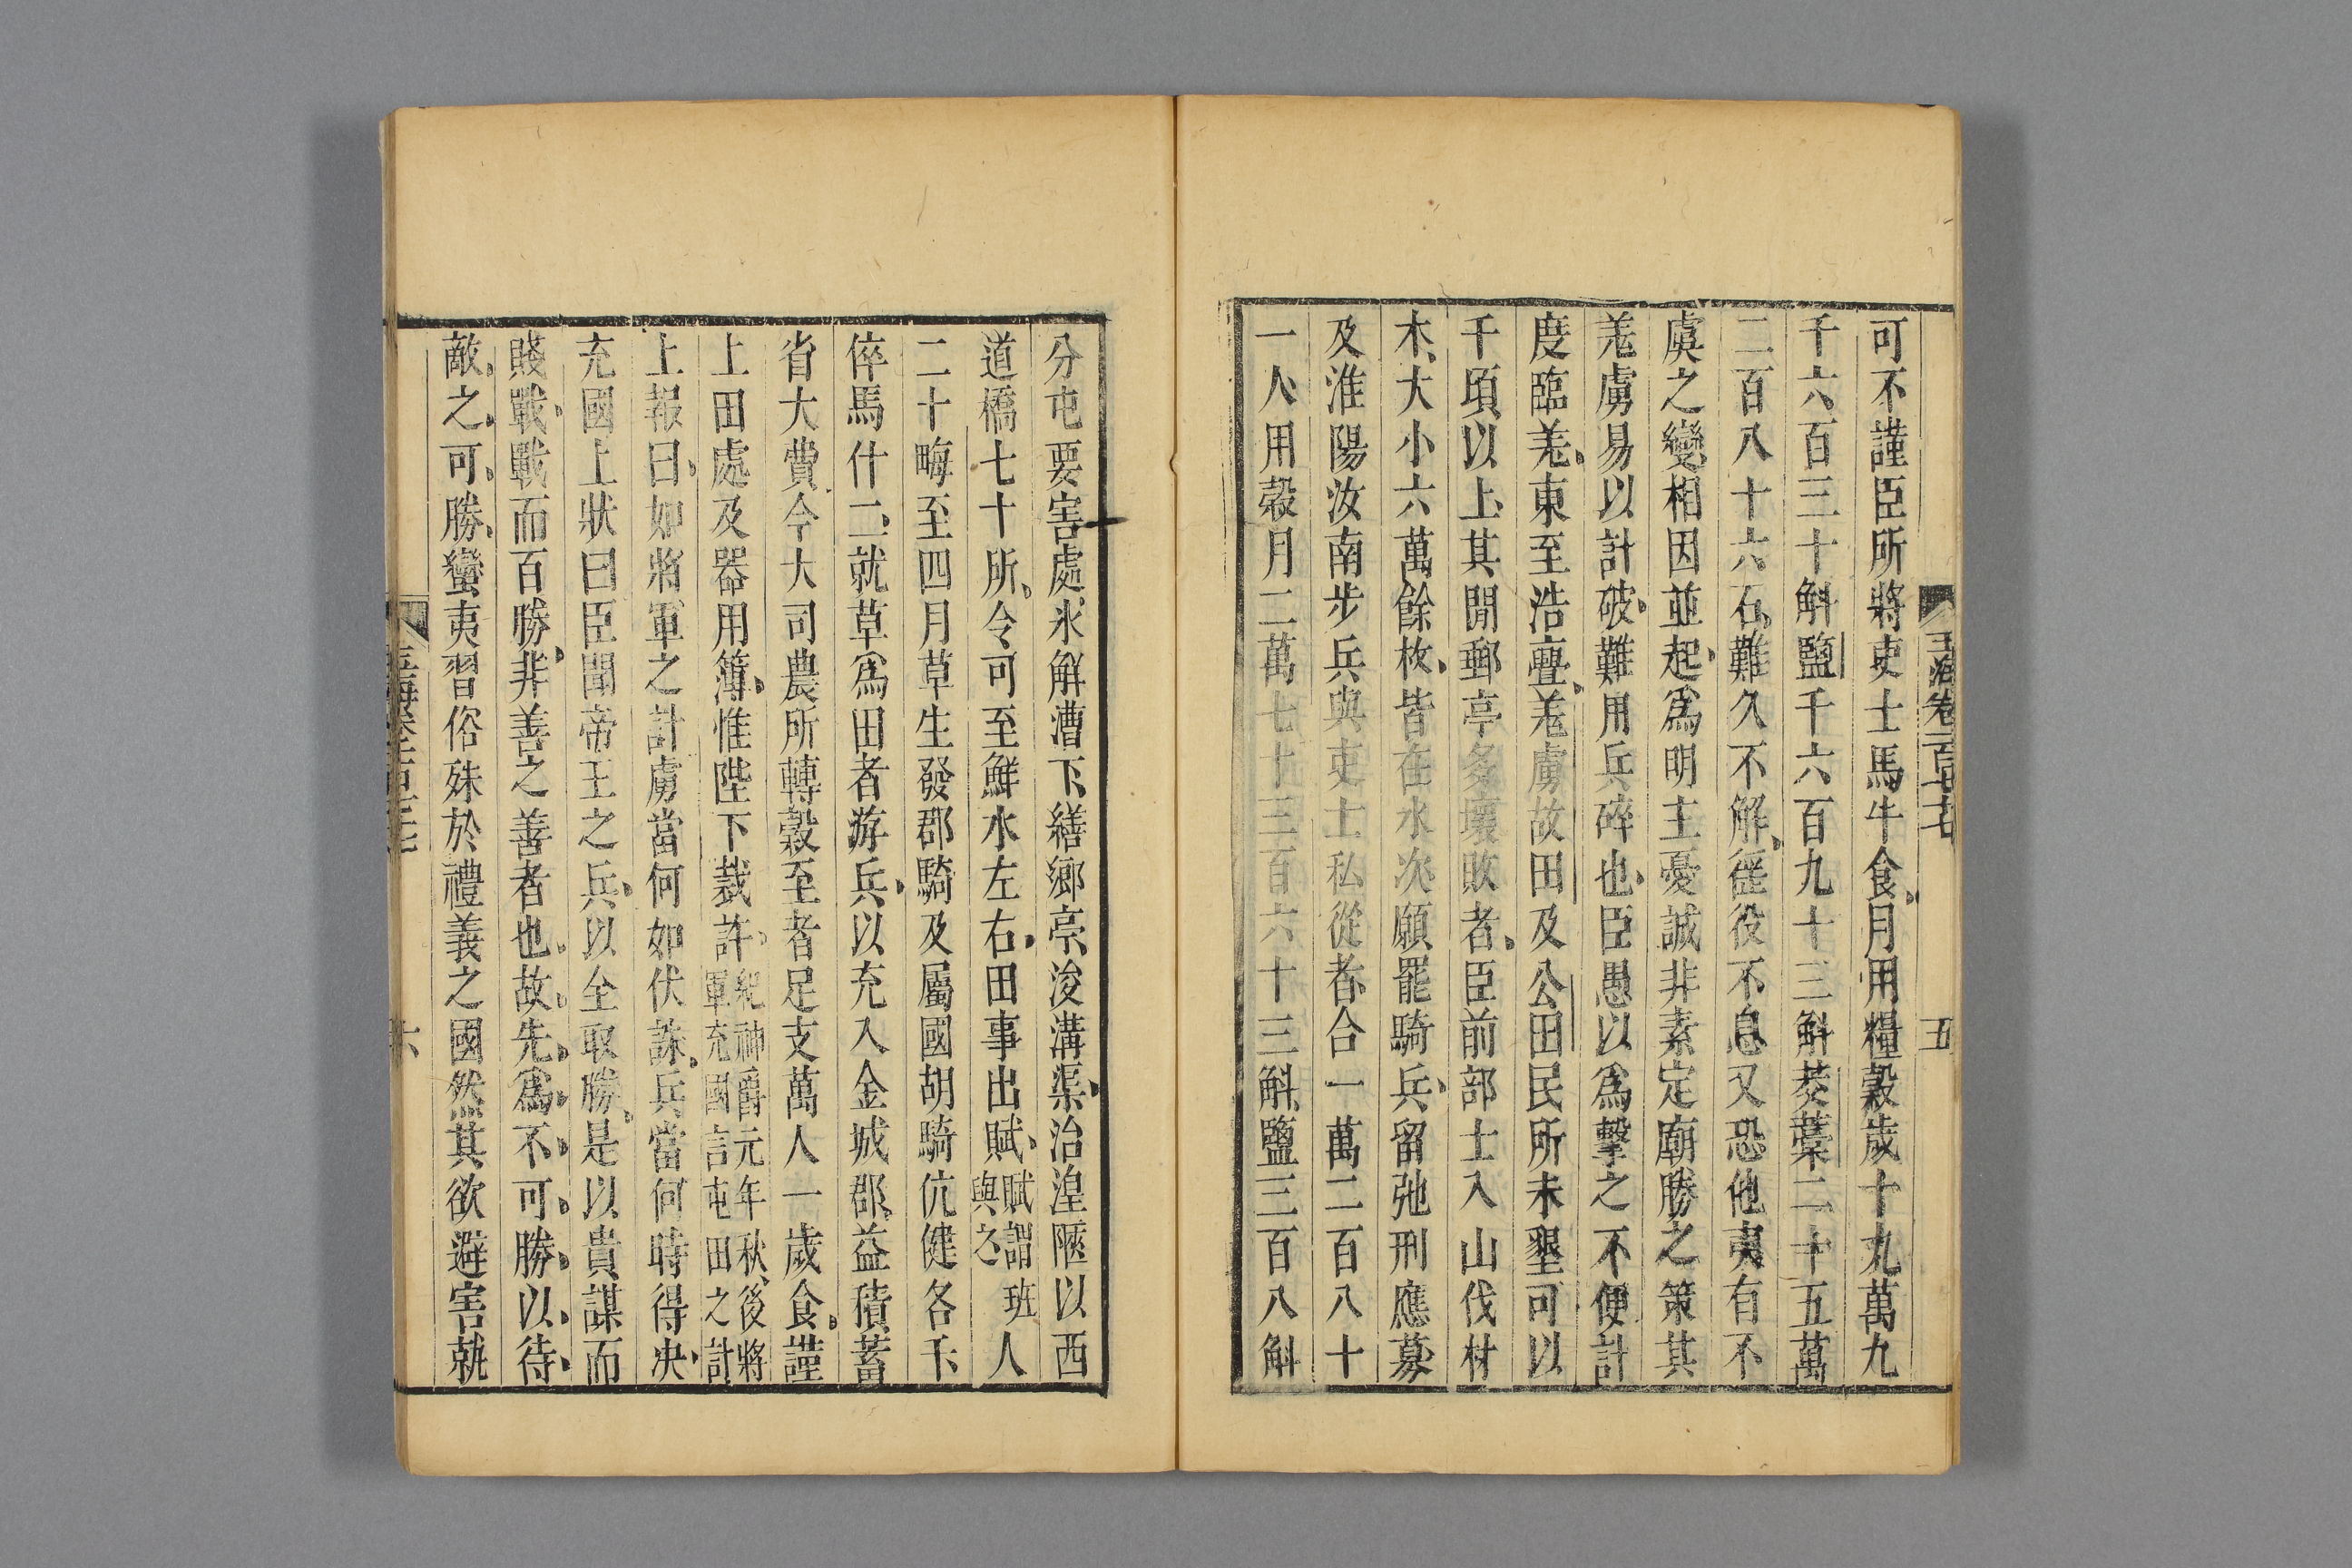 玉海卷一百七十七 五
可不謹臣所將吏士馬牛食月用糧穀歲十九萬九
千六百三十斛鹽千六百九十三斛茭藁二十五萬
二百八十六石難久不解徭役不息又恐他夷有不
虞之變相因並起爲明主憂誠非素定廟勝之策其
羗虜易以計破難用兵碎也臣愚以爲擊之不便計
度臨羗東至浩亹羗虜故田及公田民所未墾可以
千頃以上其閒郵亭多壞敗者臣前部士入山伐材
木大小六萬餘枚皆在水次願罷騎兵留弛刑應募
及淮陽汝南步兵與吏士私從者合一萬二百八十
一人用穀月二萬七十三百六十三斛鹽三百八斛
分屯要害處氷解漕下繕鄉亭浚溝渠治湟陿以西
道橋七十所令可至鮮水左右田事出賦賦謂班與之人
二十畮至四月草生發郡騎及屬國胡騎伉健各千
倅馬什二就草爲田者游兵以充入金城郡益積蓄
省大費今大司農所轉穀至者足支萬人一歲食謹
上田處及器用簿惟陛下裁許紀神爵元年秋後將軍充國言屯田之計
上報曰如將軍之計虜當何如伏誅兵當何時得决
充國上狀曰臣聞帝王之兵以全取勝是以貴謀而
賤戰戰而百勝非善之善者也故先爲不可勝以待
敵之可勝蠻夷習俗殊於禮義之國然其欲避害就
六